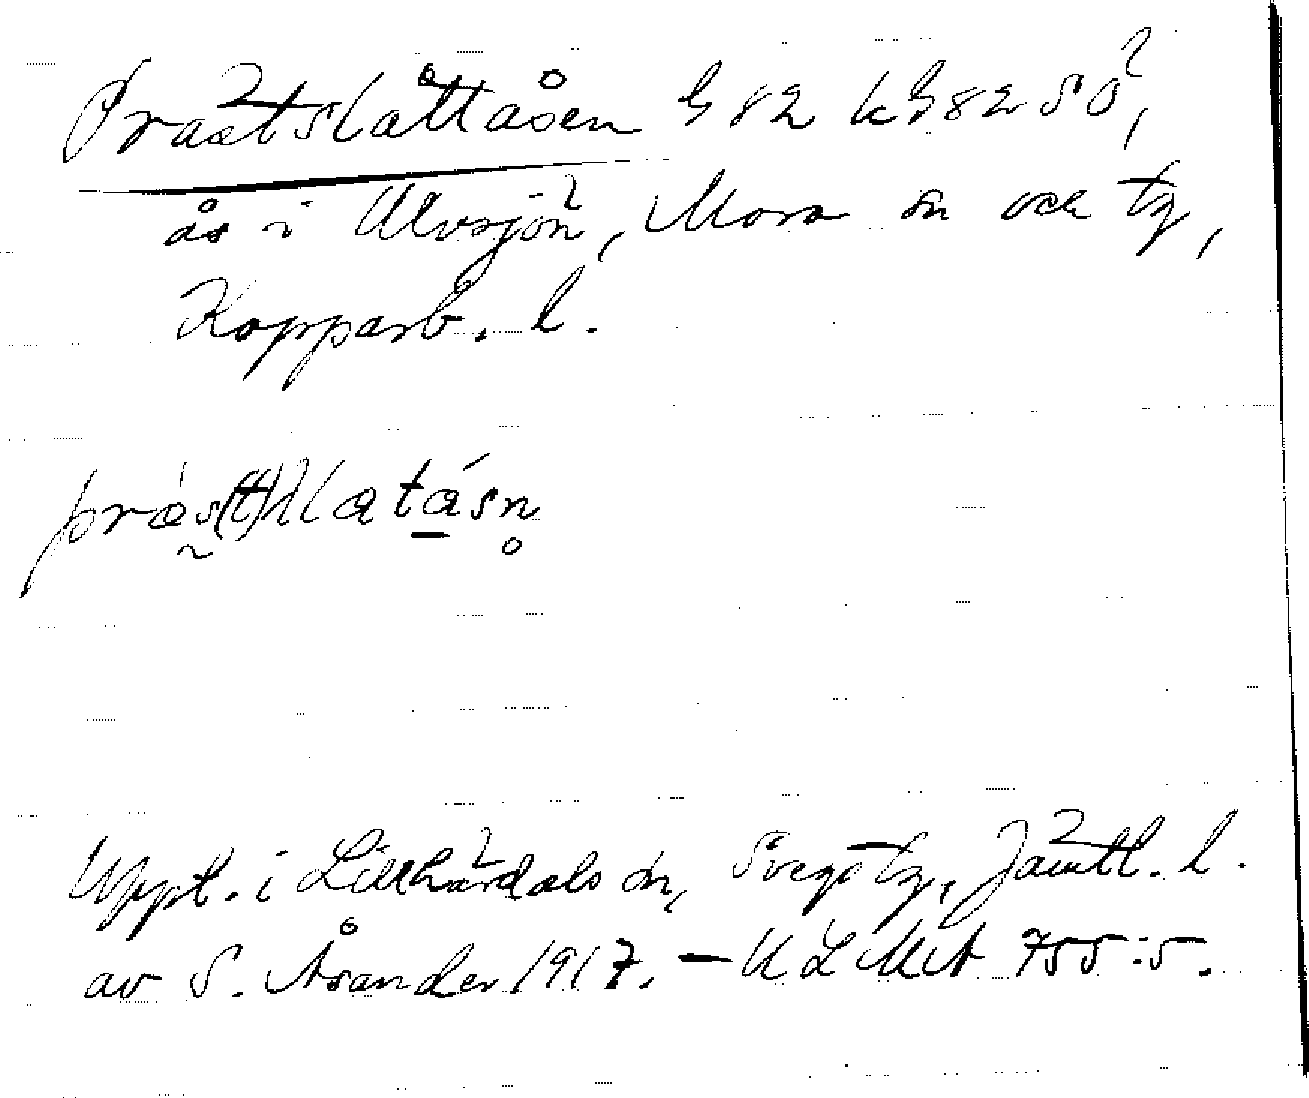 Prästslåttåsen G 82 kG 82 SÖ,
ås i Älvsjön, Mora sn och tg,
Kopparb. l.
præs(t)slatåsn
Uppt. i Lillhärdals sn, Svegs tg, Jämtl. l.
av S. Åsander 1917. — ULMA 755:5.